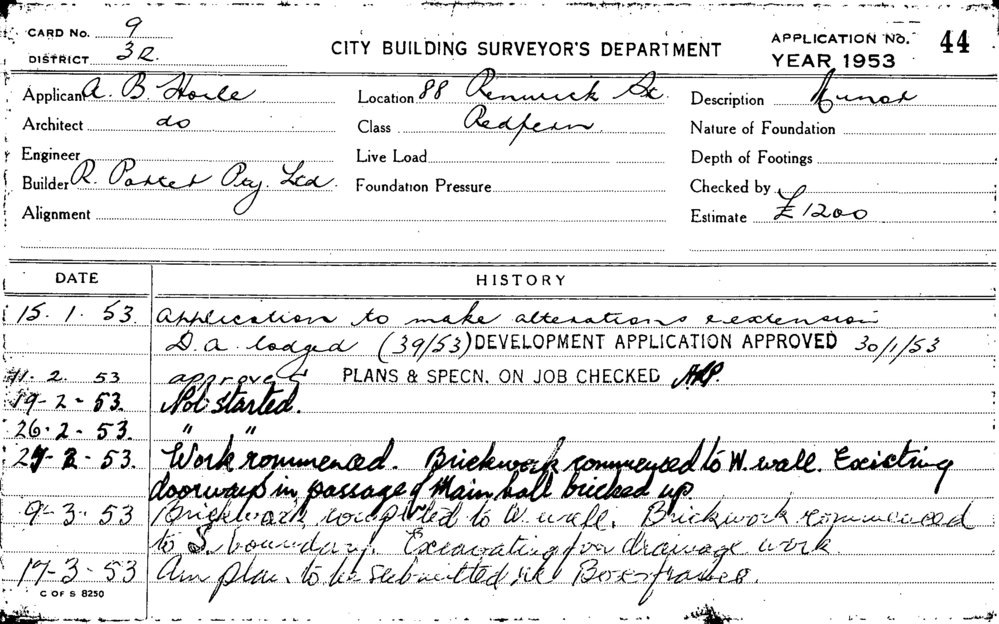 CARD No. 9
DISTRICT 32
CITY BUILDING SURVEYOR'S DEPARTMENT
APPLICATION No. 44
YEAR 1953
Applicant A. B. Hoile
Location 88 Renwick St.
Description Minor
Architect do
Class Redfern
Nature of Foundation
Engineer
Live Load
Depth of Footings
Builder R. Parker Pty. Ltd.
Foundation Pressure
Checked by
Alignment
Estimate £1200
DATE HISTORY
15. 1. 53. Application to make alterations & extension
D.A. lodged (39/53) DEVELOPMENT APPLICATION APPROVED 30/1/53
11. 2. 53 approved PLANS & SPECN. ON JOB CHECKED
19-2-53. Not started.
26-2-53. " "
27-2-53. Work commenced. Brickwork commenced to W. wall. Existing
doorways in passage of Main hall bricked up.
9-3-53 Brickwork completed to W. wall. Brickwork commenced
to S. boundary. Excavating for drainage work.
17-3-53 Am plan. to be submitted re Boxframes.
C OF S 8250